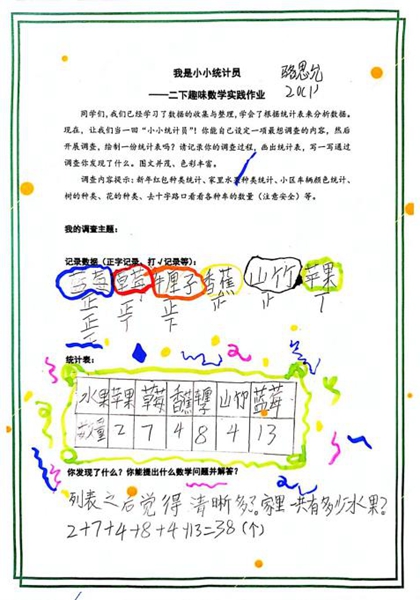 我是小小统计员
——二下趣味数学实践作业
同学们,我们已经学习了数据的收集与整理,学会了根据统计表来分析数据。
现在,让我们当一回“小小统计员”!你能自己设定一项最想调查的内容,然后
开展调查,绘制一份统计表吗?请记录你的调查过程,画出统计表,写一写通过
调查你发现了什么。图文并茂、色彩丰富。
调查内容提示:新年红包种类统计、家里水果种类统计、小区车辆颜色统计、
树的种类、花的种类、去十字路口看看各种车的数量(注意安全)等。
我的调查主题:
记录数据(正字记录、打√记录等):
蓝莓 草莓 车厘子 香蕉 山竹 苹果
统计表:
水果 苹果 草莓 香蕉 山竹 蓝莓
数量 2 7 4 8 4 13
你发现了什么?你能提出什么数学问题并解答?
列表之后觉得清晰多了。家里一共有多少水果?
2+7+4+8+4+13=38(个)